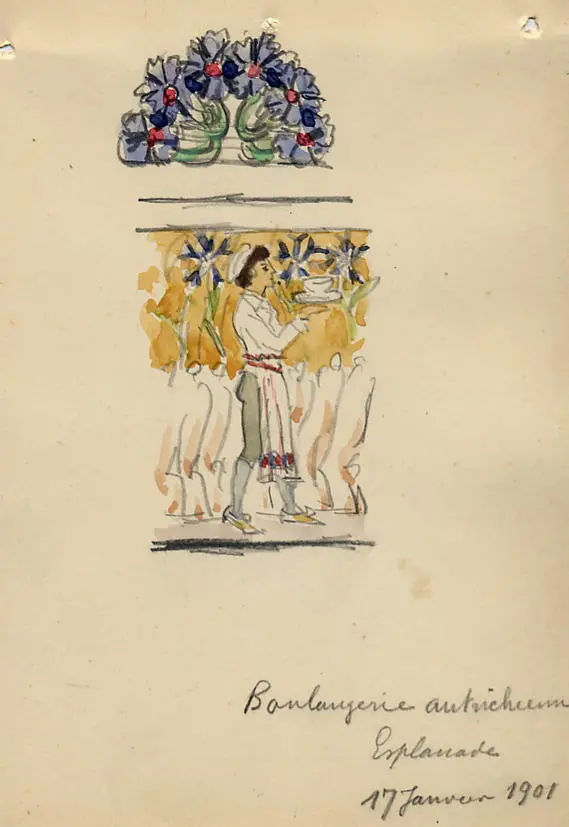 Boulangerie autrichienn
Esplanade
17 Janvier 1901